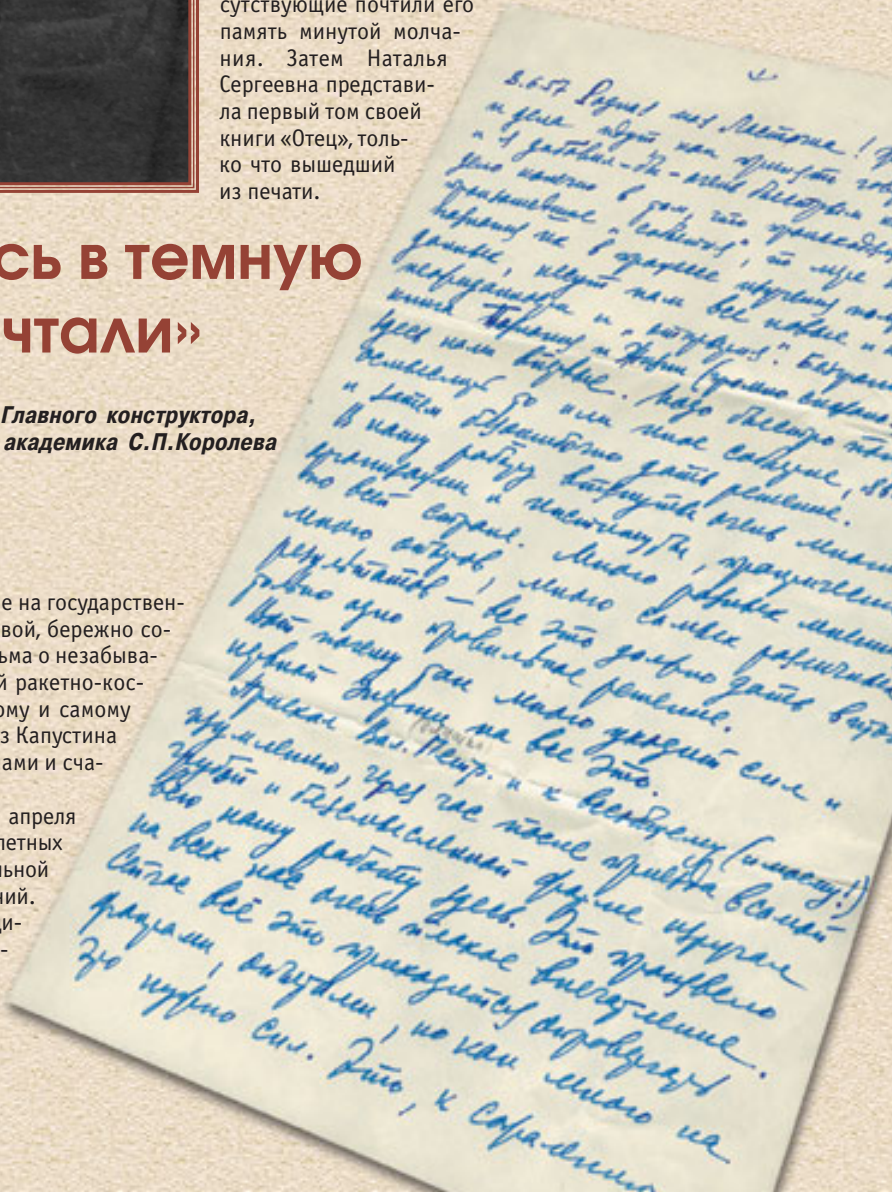 сутствующие почтили его
память минутой молча-
ния. Затем Наталья
Сергеевна представи-
ла первый том своей
книги «Отец», толь-
ко что вышедший
из печати.
сь в темную
чтали»
Главного конструктора,
академика С.П.Королева
е на государствен-
вой, бережно со-
ьма о незабыва-
й ракетно-кос-
ому и самому
з Капустина
ами и сча-
апреля
летных
льной
ний.
ди-
-
8.6.57 Родная моя Ласточка!
и дела идут как принято
и я добавил – очень быстрым
дело конечно в том, что
то мере
в процессе изучения
данные, несут нам все новые и
неожиданности и
книга Природы и Жизни
здесь нами впервые. Надо быстро
осмыслить то или иное событие,
и затем безошибочно дать решение.
В нашу работу втянуты очень много
организации и институты, практически
по всей стране. Много разных мнений
много опытов, много самых различных
результатов — все это должно дать
только одно правильное решение.
Вот почему так много уходит сил и
нервной энергии на все это.
Приехал Вал. Петр. и к всеобщему (и моему!)
изумлению, через час после приезда в самой
грубой и бессмысленной форме изругал
всю нашу работу здесь. Это произвело
на всех нас очень плохое впечатление.
Сейчас всё это приходится опровергать
фактами, опытами, но как много на
это нужно сил. Это, к сожалению